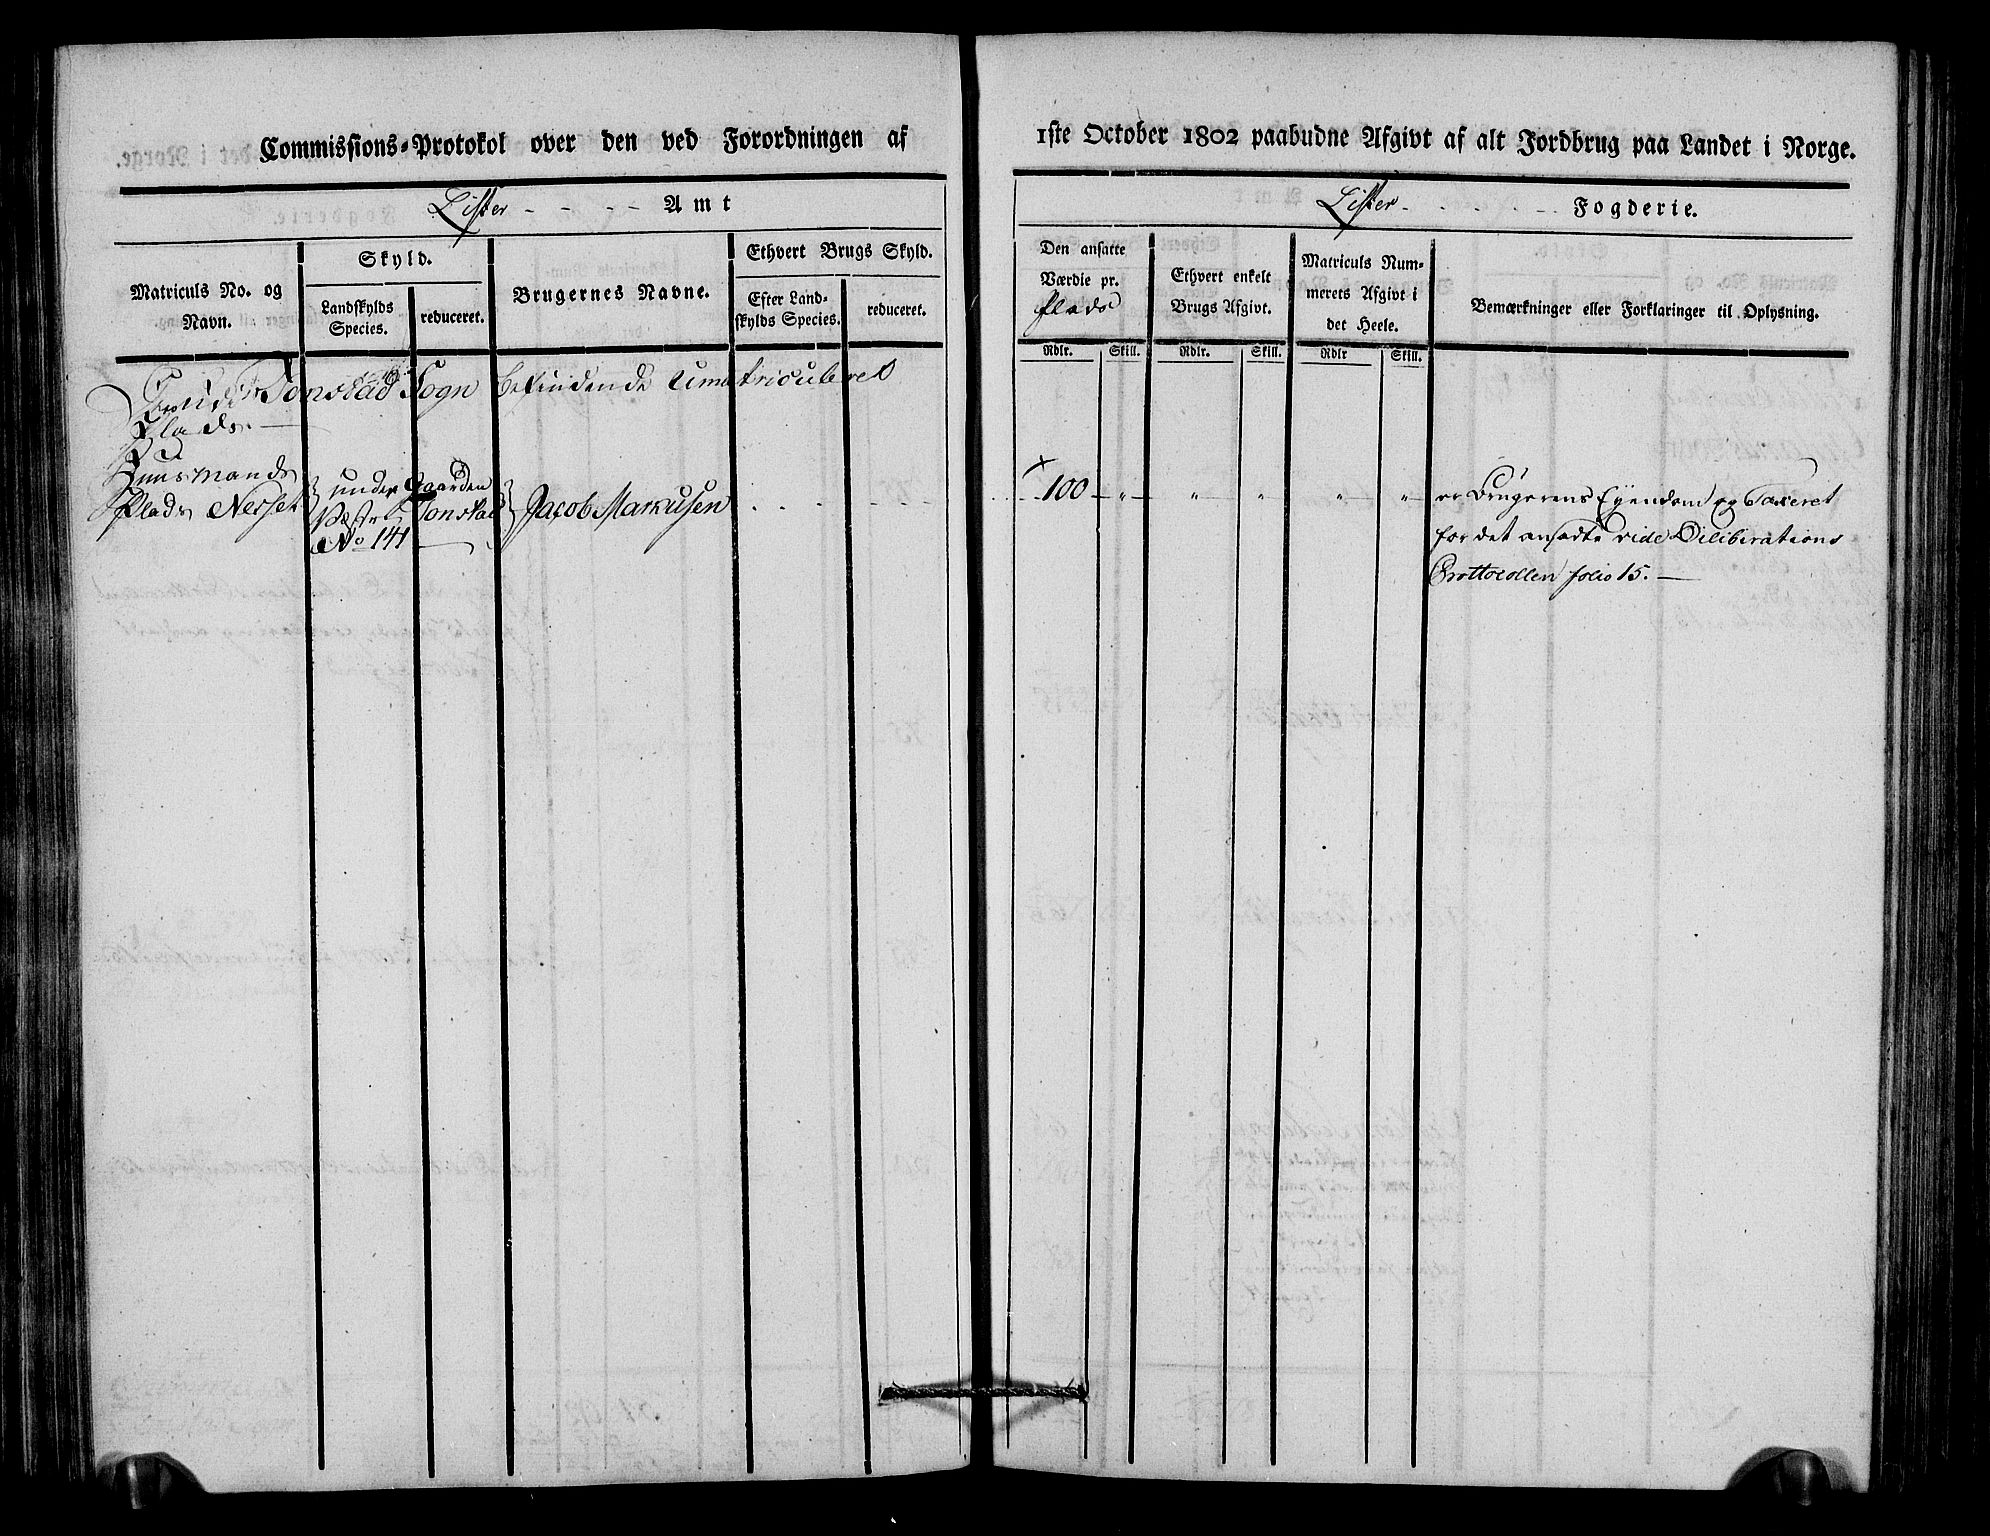 Commissions-Protokol over den ved Forordningen af
1ste October 1802 paabudne Afgivt af alt Jordbrug paa Landet i Norge.
Lister - - - - Amt
Lister - - - - Fogderie.
Matriculs No. og Navn.
Skyld.
Landskylds Species.
reduceret.
Brugernes Navne.
Ethvert Brugs Skyld.
Efter Landskylds Species.
reduceret.
Den ansatte
Værdie pr.
Plads
Rdlr. Skill.
Ethvert enkelt
Brugs Afgivt.
Rdlr. Skill.
Matriculs Num-
merets Afgivt i
det Heele.
Rdlr Skill.
Bemærkninger eller Forklaringer til Oplysning.
Tonstad Sogn befindende Umatriculeret
Plads.
Huusmands
Plads Nesset
under Gaarden
Tonstad
No 141
Jacob Markusen
100 " " " " "
er Brugerens Eyendom og Taxeret
for det ansadte vide Deliberations
Prottocollen folio 15.